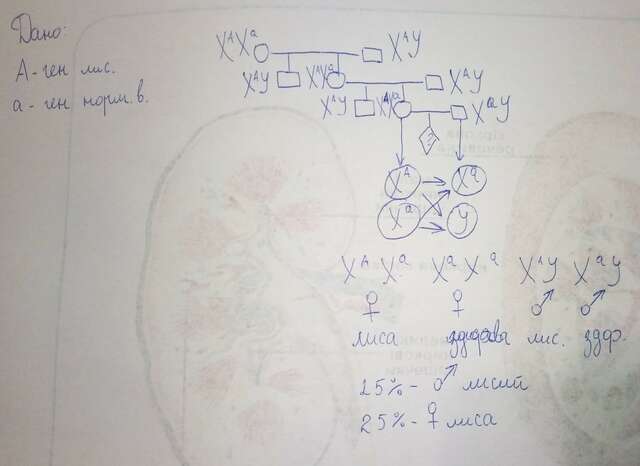 Дано:
А - ген лис.
а - ген норм. в.
XᴬXᵃ XᴬY
XᴬY XᴬXᵃ XᴬY
XᴬY XᴬXᵃ XᵃY
?
Xᴬ Xᵃ
Xᵃ Y
XᴬXᵃ XᵃXᵃ XᴬY XᵃY
♀ ♀ ♂ ♂
лиса здорова лис. здор.
25% - ♂ лисий
25% - ♀ лиса